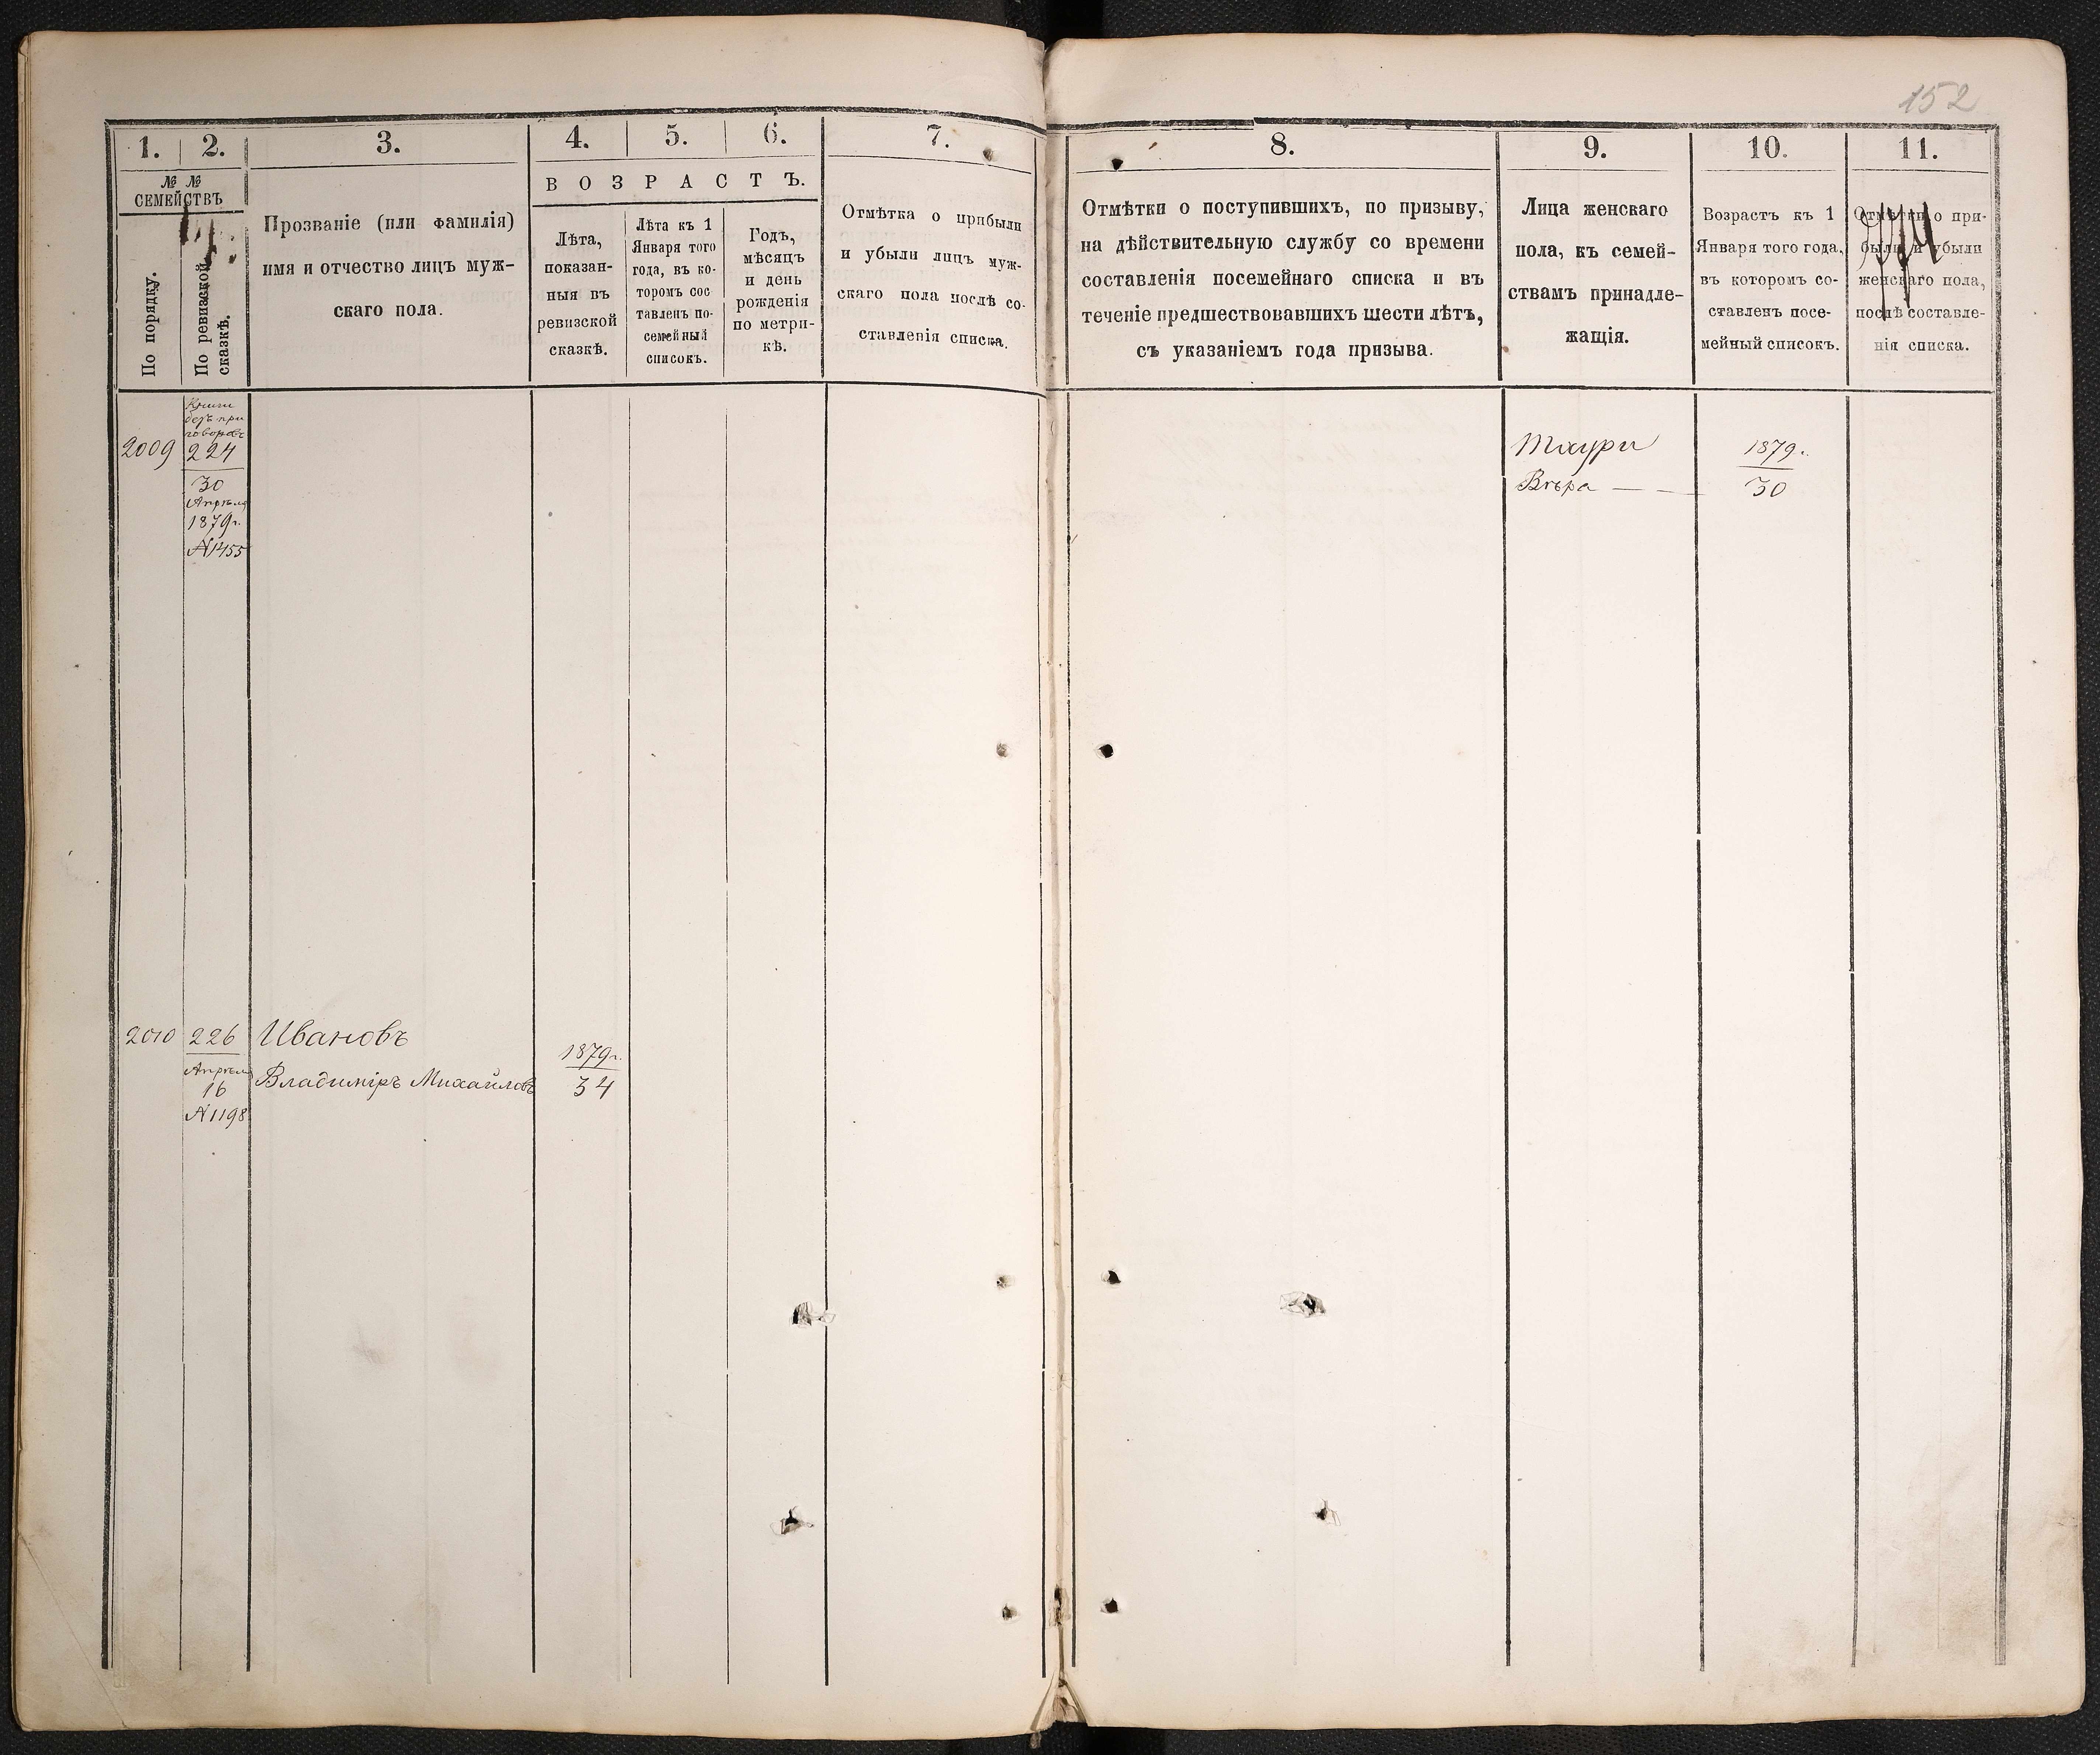 152
1.
2.
3.
4.
5.
6.
7.
№ №
СЕМЕЙСТВЪ
По порядку.
По ревизской
сказкѣ.
Прозваніе (или фамилія)
имя и отчество лицъ муж-
скаго пола.
ВОЗРАСТЪ.
Лѣта,
показан-
ныя въ
ревизской
сказкѣ.
Лѣта къ 1
Января того
года, въ ко-
торомъ сос
тавленъ по-
семейный
списокъ.
Годъ,
мѣсяцъ
и день
рожденія
по метри-
кѣ.
Отмѣтка о прибыли
и убыли лицъ муж-
скаго пола послѣ со-
ставленія списка.
8.
9.
10.
11.
Отмѣтки о поступившихъ, по призыву,
на дѣйствительную службу со времени
составленія посемейнаго списка и въ
теченіе предшествовавшихъ шести лѣтъ,
съ указаніемъ года призыва.
Лица женскаго
пола, къ семей-
ствамъ принадле-
жащія.
Возрастъ къ 1
Января того года,
въ которомъ со-
ставленъ посе-
мейный списокъ.
Отмѣтки о при-
были и убыли
женскаго пола,
послѣ составле-
нія списка.
2009
Книги
безъ при
говоровъ
224
30
Апрѣля
1879г.
№1455
Маури
Вѣра
1879г.
30
2010
226
Апрѣля
16
№1198
Ивановъ
Владиміръ Михайловъ
1879г.
34